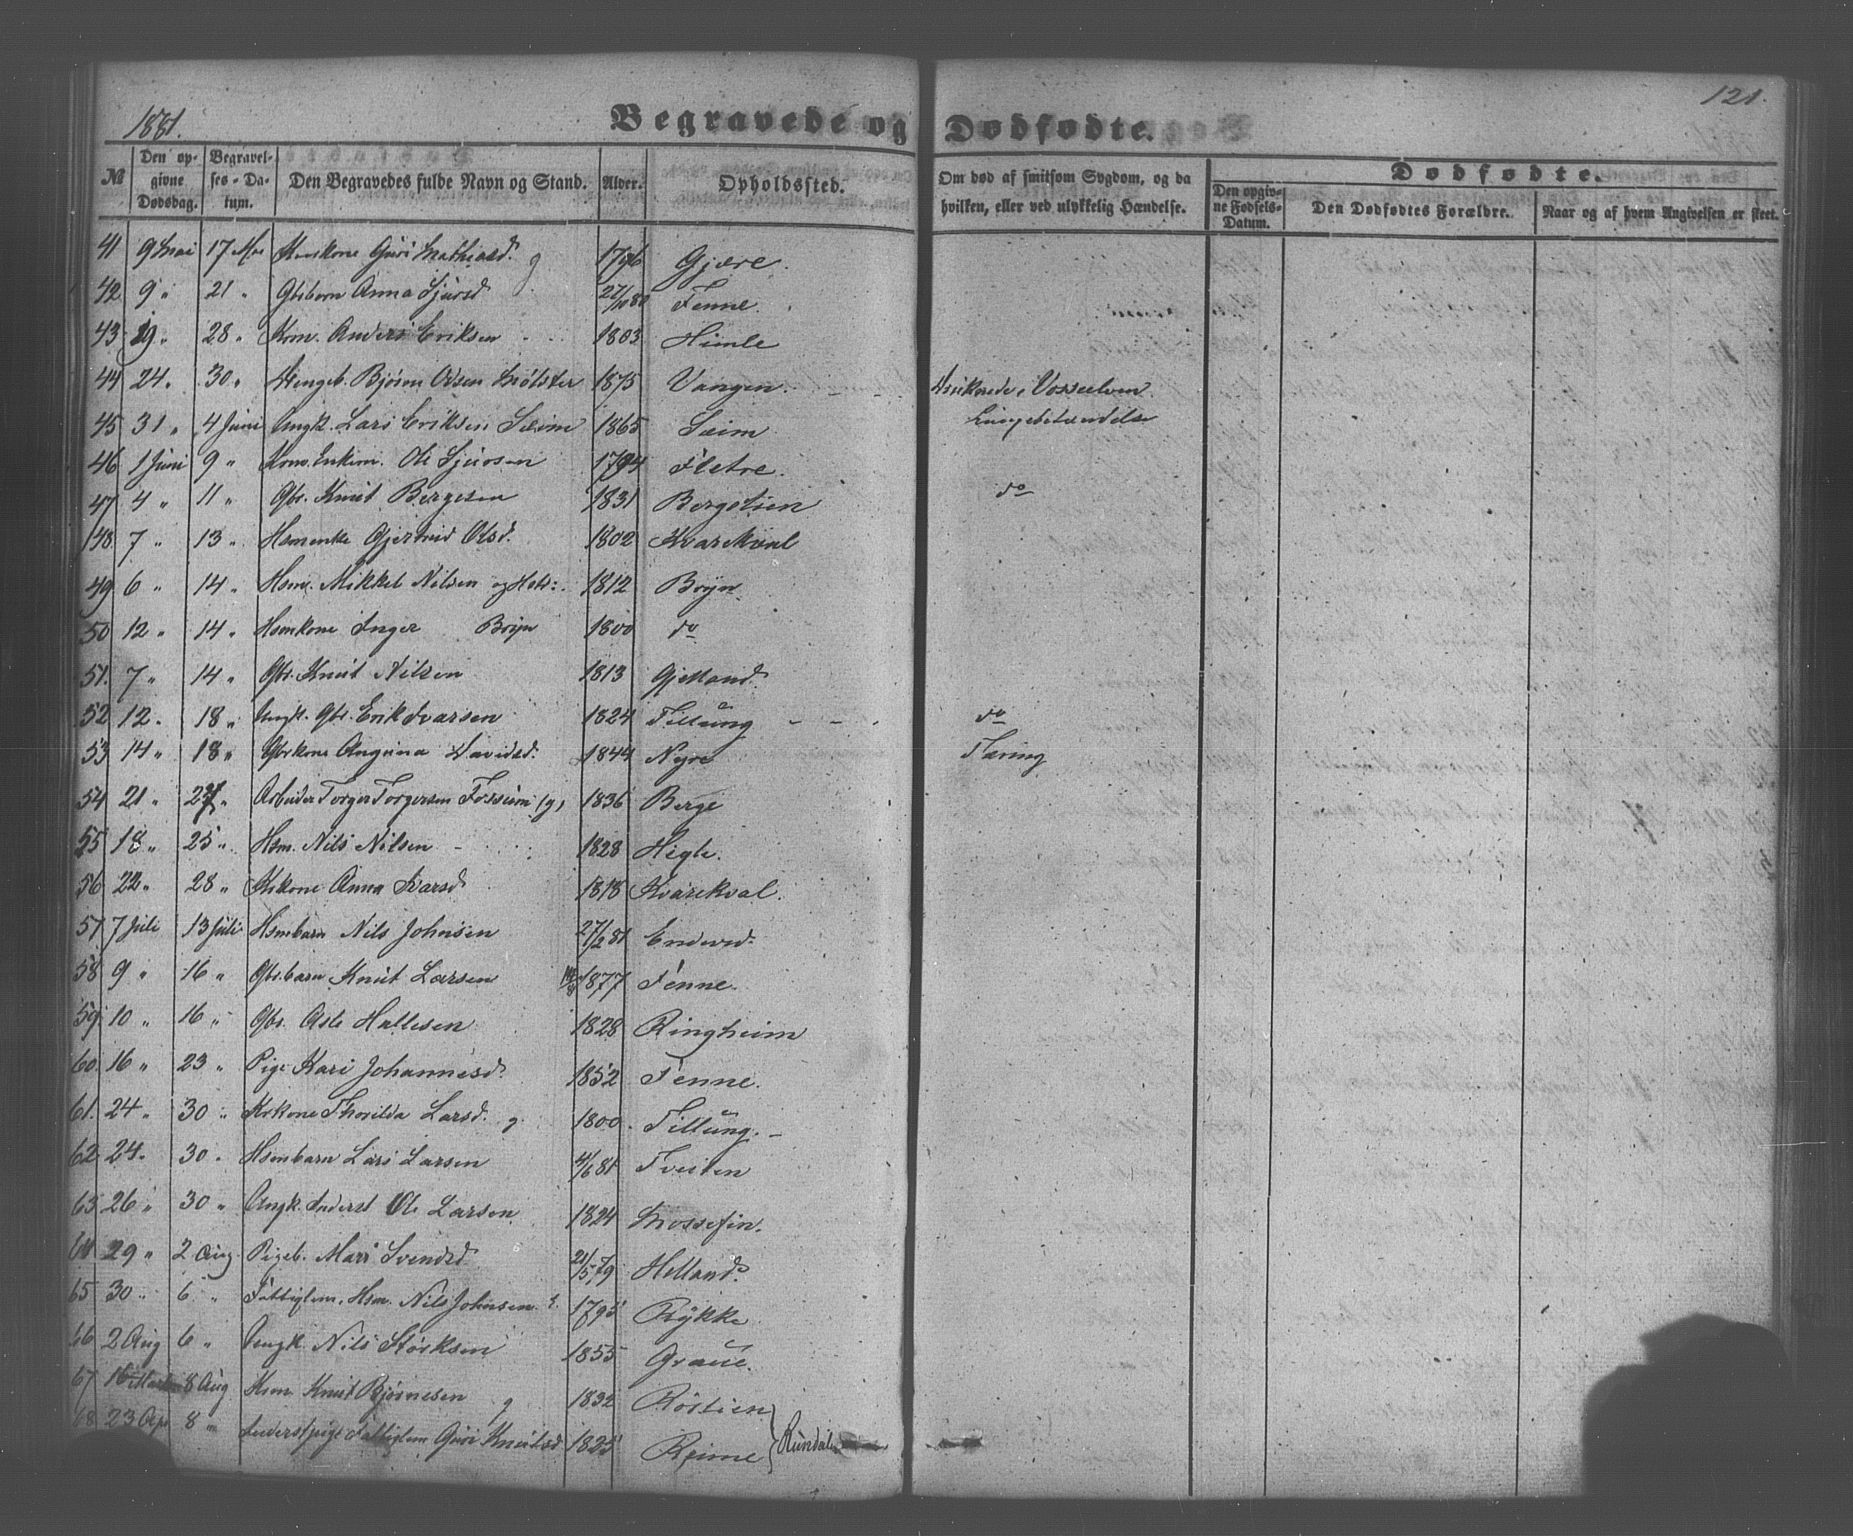 1881.
Begravede og Dødfødte.
121.
№ Den opgivne Dødsdag. Begravelses-Datum. Den Begravedes fulde Navn og Stand. Alder. Opholdssted. Om død af smitsom Sygdom, og da hvilken, eller ved ulykkelig Hændelse. Dødfødte.
Den opgivne Fødsels-Datum. Den Dødfødtes Forældre. Naar og af hvem Angivelsen er skeet.
41 9 Mai 17 Mai Guri Mathiasd. g 1796 Gjære.
42 9 " 21 " Gbsbarn Anna Sjursd 27/10 80 Fenne.
43 19 " 28 " Anders Eriksen 1803 Himle
44 24 " 30 " Drengeb. Bjørn Olsen Mølster 1875 Vangen. Druknede i Vosseelven
45 31 " 4 Juni Ungk. Lars Eriksen Sæim 1865 Sæim Lungebetændelse
46 1 Juni 9 " Enkem. Ole Sjursen 1794 Fletre.
47 4 " 11 " Gbr. Knut Bergesen 1831 Bergstien do
48 7 " 13 " Hsmenke Gjertrud Olsd. 1802 Kvarekval
49 6 " 14 " Hsm. Mikkel Nilsen og Hstr: 1812 Bryn.
50 12 " 14 " Hsmkone Inger Bryn 1800 do
51. 7 " 14 " Gbr. Knut Nilsen 1813 Gjelland.
52 12 " 18 " Ungk. Gbr. Erik Ivarsen 1824 Tillung do
53 14 " 18 " Gbrkone Anguna Davidsd. 1844 Nyre Tæring
54 21 " Arbeider Torger Torgersen Fossum (g) 1836 Berge
55 18 " 25 " Hsm. Nils Nilsen 1828 Higle.
56 22 " 28 " Krkone Anna Ivarsd 1818 Kvarekval.
57 7 Juli 13 Juli Hsmbarn Nils Johnsen 27/2 81 Endeved.
58 9 " 16 " Gbrbarn Knut Larsen 1877 Fenne.
59 10 " 16 " Gbr. Asle Hallesen 1828 Ringheim
60 16 " 23 " Pige Kari Johannesd. 1852 Fenne.
61. 24 " 30 " Krkone Thorilda Larsd. g. 1800 Tillung.
62 24 " 30 " Hsmbarn Lars Larsen 4/6 81 Tveiten
63 26 " 30 " Ungk. Inderst Ole Larsen 1824 Mossefin.
64 29 " 2 Aug. Pigeb. Mari Svendsd 21/5 79 Helland.
65 30 " 6 " Fattiglem. Hsm. Nils Johnsen 1795 Rykke
66 2 Aug 6 " Ungk. Nils Størksen 1855 Graue.
67 8 Aug Hsm. Knut Bjørnesen g 1832 Røstien
68 23 Apr 8 " Inderstpige Fattiglem Guri Knutsd 1825 Reime } Rundal